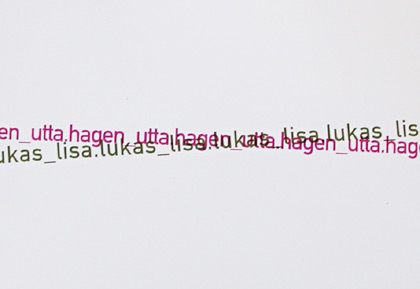 en_utta.hagen_utta.hagen_utta.hagen_utta.hag
ukas_lisa.lukas_lisa.lukas_lisa.lukas_lis